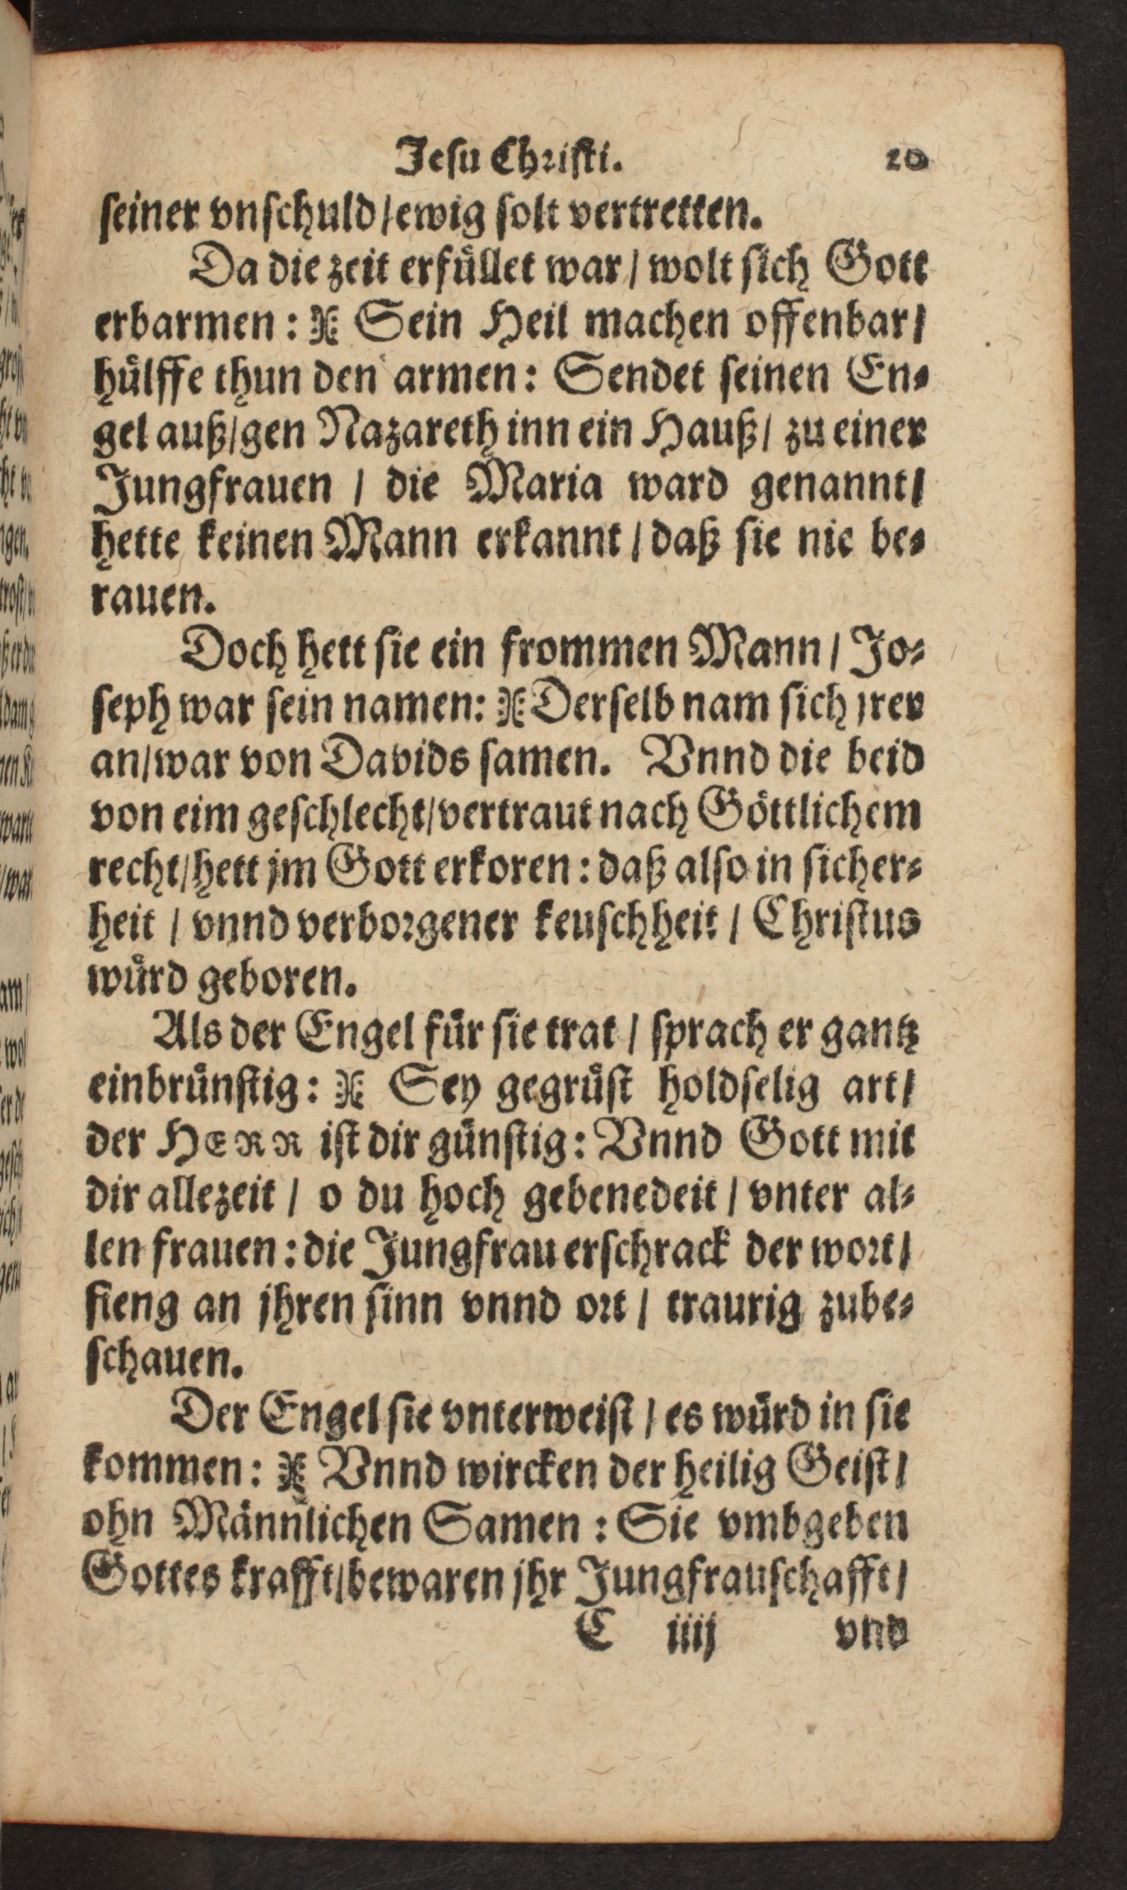 Jesu Christi. 20
seiner vnschuld/ewig solt vertretten.
Da die zeit erfüllet war / wolt sich Gott
erbarmen : Sein Heil machen offenbar/
hülffe thun den armen: Sendet seinen En-
gel auß/gen Nazareth inn ein Hauß/ zu einer
Jungfrauen / die Maria ward genannt/
hette keinen Mann erkannt / daß sie nie be-
rauen.
Doch hett sie ein frommen Mann / Jo-
seph war sein namen: Derselb nam sich jrer
an/war von Davids samen. Vnnd die beid
von eim geschlecht/vertraut nach Göttlichem
recht/hett jm Gott erkoren : daß also in sicher-
heit / vnnd verborgener keuschheit / Christus
würd geboren.
Als der Engel für sie trat / sprach er gantz
einbrünstig: Sey gegrüst holdselig art/
der HERR ist dir günstig: Vnnd Gott mit
dir allezeit / o du hoch gebenedeit / vnter al-
len frauen : die Jungfrau erschrack der wort/
fieng an jhren sinn vnnd ort / traurig zube-
schauen.
Der Engel sie vnterweist / es würd in sie
kommen: Vnnd wircken der heilig Geist/
ohn Männlichen Samen : Sie vmbgeben
Gottes krafft/bewaren jhr Jungfrauschafft/
C iiij vnd